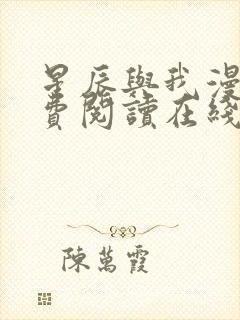 星辰與我漫
費閱讀在綫
陳萬霞